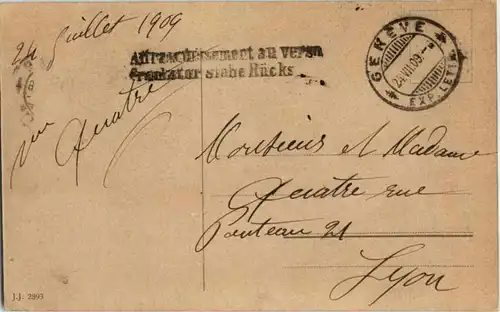 24 Juillet 1909
Affranchissement au verso
Frankatur siehe Rücks
GENÈVE
24.VII.09.
EXP. LETT.
Quatre
Monsieur et Madame
Quatre rue
Ponteau 21
Lyon
J.J. 2893